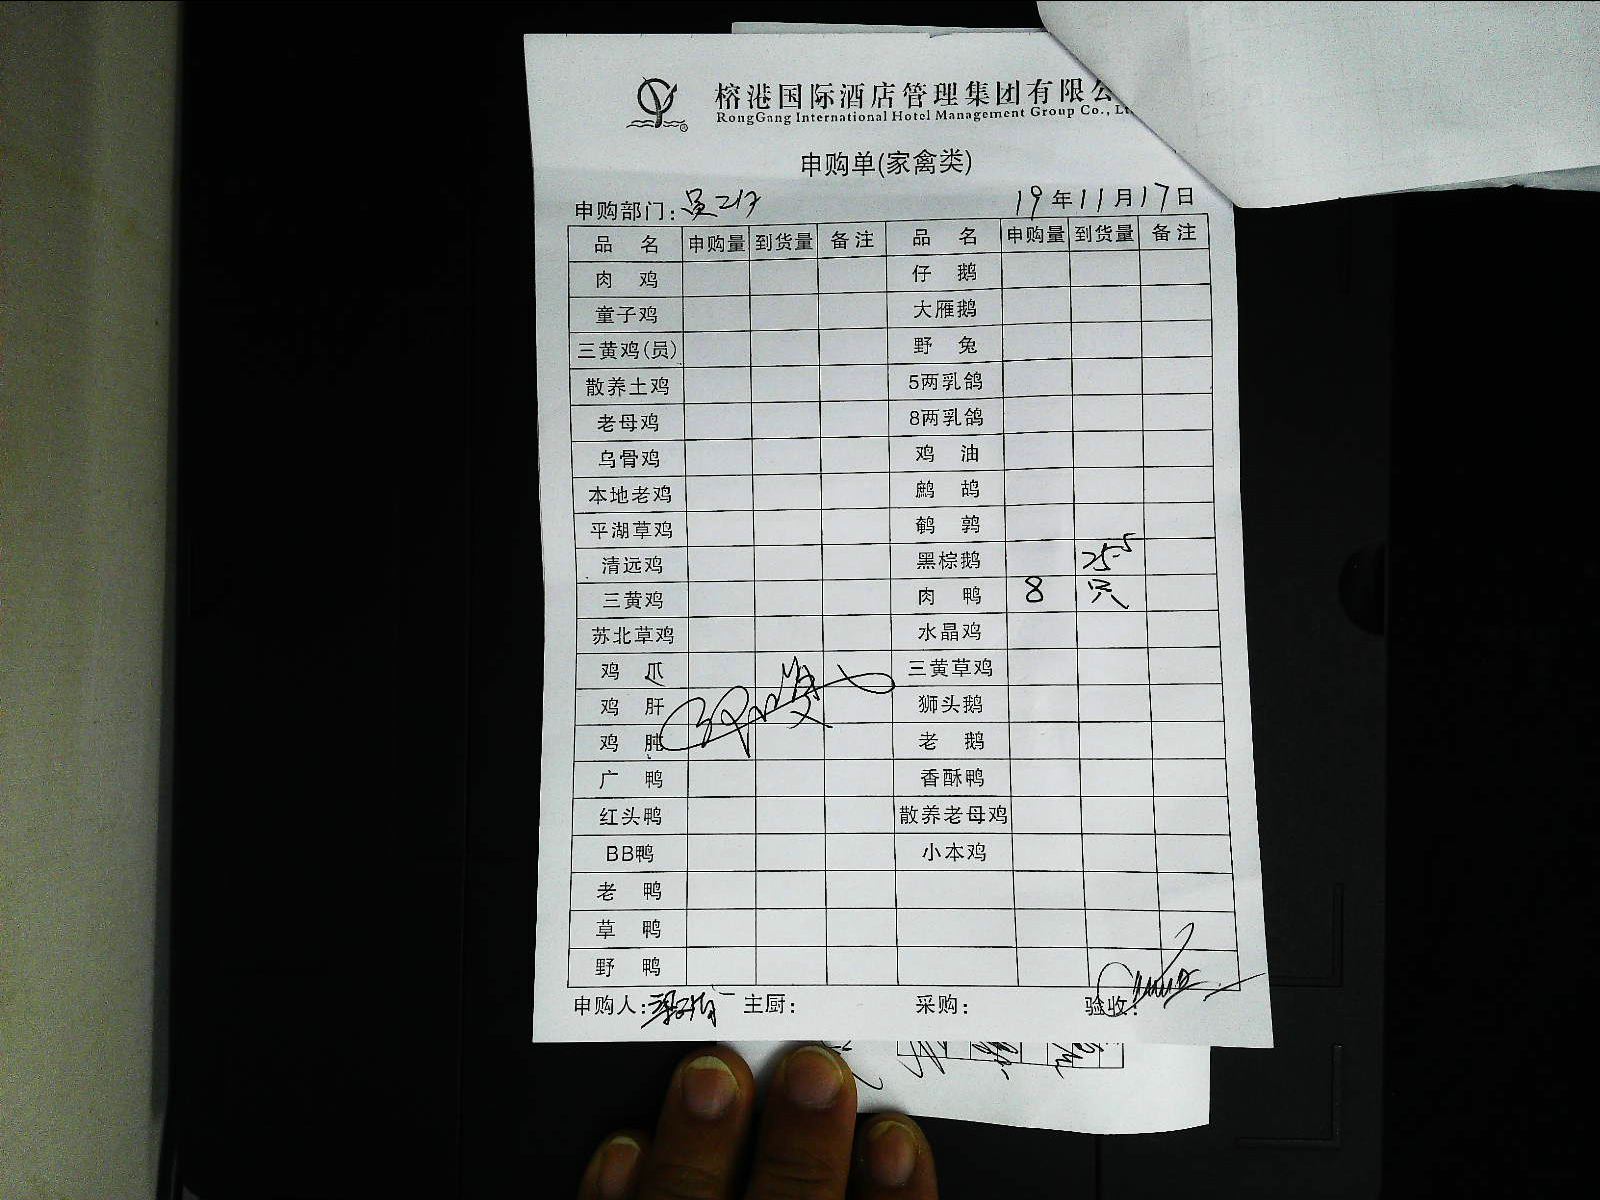 榕港国际酒店管理集团有限公
RongGang International Hotel Management Group Co., Lt
申购单(家禽类)
申购部门: 19年11月17日
品名 申购量 到货量 备注 品名 申购量 到货量 备注
肉鸡 仔鹅
童子鸡 大雁鹅
三黄鸡(员) 野兔
散养土鸡 5两乳鸽
老母鸡 8两乳鸽
乌骨鸡 鸡油
本地老鸡 鹧鸪
平湖草鸡 鹌鹑
清远鸡 黑棕鹅 25.5
三黄鸡 肉鸭 8 只
苏北草鸡 水晶鸡
鸡爪 三黄草鸡
鸡肝 狮头鹅
鸡肫 老鹅
广鸭 香酥鸭
红头鸭 散养老母鸡
BB鸭 小本鸡
老鸭
草鸭
野鸭
申购人: 主厨: 采购: 验收: